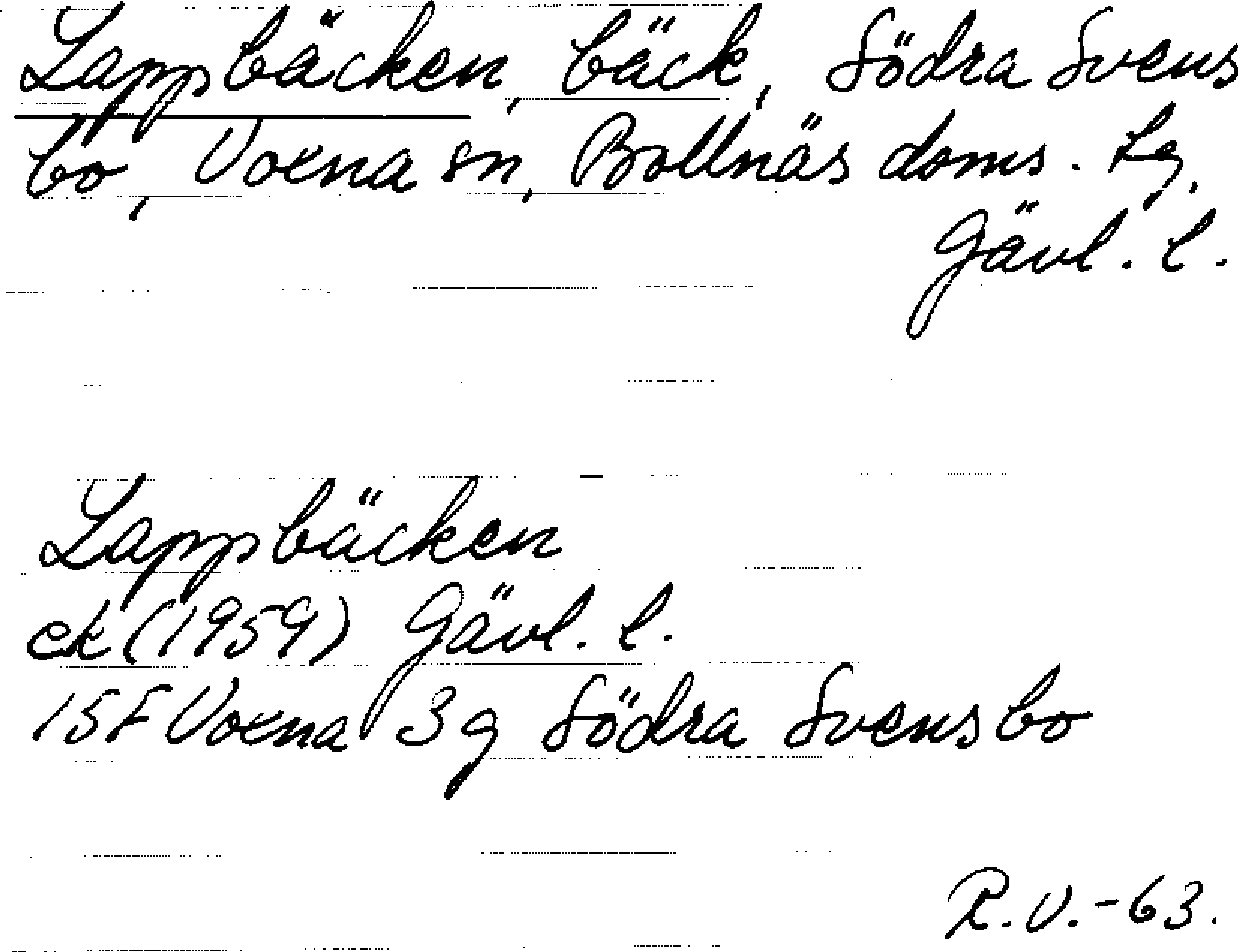 Lappbäcken, bäck, Södra Svens
bo, Voxna sn, Bollnäs doms. tg,
Gävl. l.
Lappbäcken
ek (1959) Gävl. l.
15F Voxna 3g Södra Svensbo
R.V.-63.